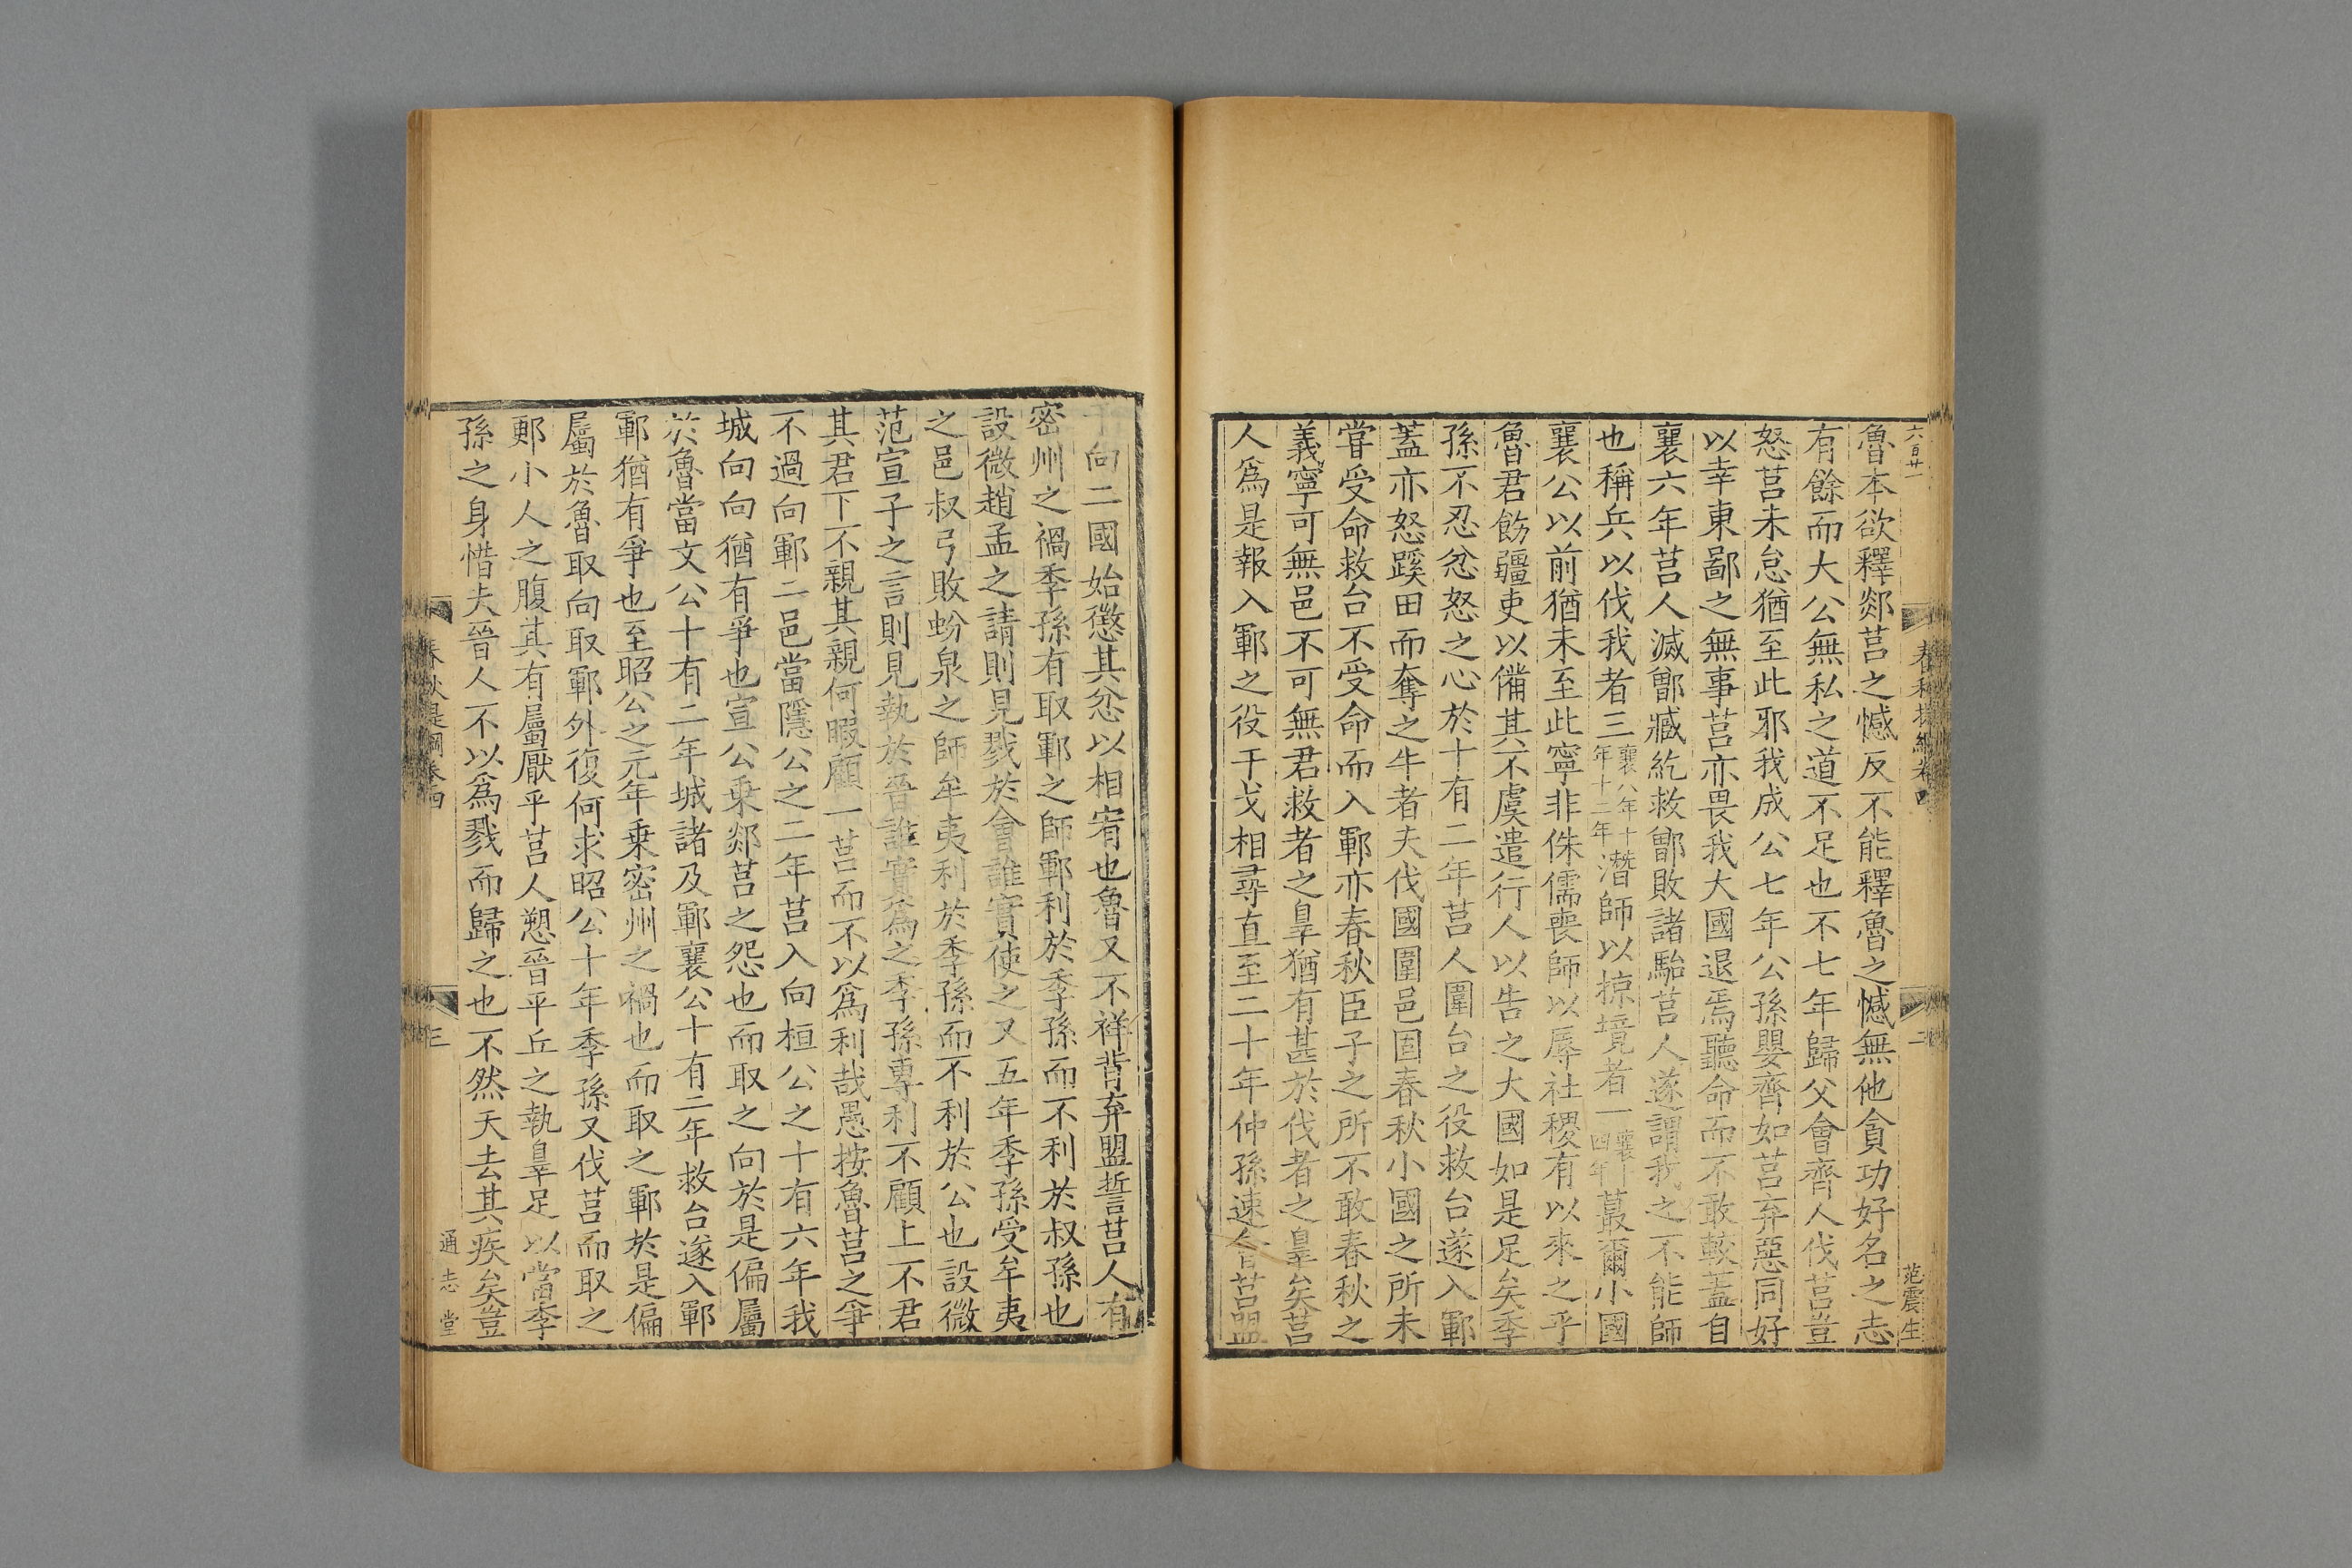 六百廿一
春秋提綱卷四
二
范震生
魯本欲釋郯莒之憾反不能釋魯之憾無他貪功好名之志
有餘而大公無私之道不足也不七年歸父會齊人伐莒豈
怒莒未怠猶至此邪我成公七年公孫嬰齊如莒弃惡同好
以幸東鄙之無事莒亦畏我大國退焉聽命而不敢較蓋自
襄六年莒人滅鄫臧紇救鄫敗諸駘莒人遂謂我之不能師
也稱兵以伐我者三襄八年十年十二年潛師以掠境者一襄十四年蕞爾小國
襄公以前猶未至此寧非侏儒喪師以辱社稷有以來之乎
魯君飭疆吏以備其不虞遣行人以告之大國如是足矣季
孫不忍忿怒之心於十有二年莒人圍台之役救台遂入鄆
蓋亦怒蹊田而奪之牛者夫伐國圍邑固春秋小國之所未
嘗受命救台不受命而入鄆亦春秋臣子之所不敢春秋之
義寧可無邑不可無君救者之辠猶有甚於伐者之辠矣莒
人爲是報入鄆之役干戈相尋直至二十年仲孫速會莒盟
于向二國始懲其忿以相宥也魯又不祥背弃盟誓莒人有
密州之禍季孫有取鄆之師鄆利於季孫而不利於叔孫也
設微趙孟之請則見戮於會誰實使之又五年季孫受牟夷
之邑叔弓敗蚡泉之師牟夷利於季孫而不利於公也設微
范宣子之言則見執於晉誰實爲之季孫專利不顧上不君
其君下不親其親何暇顧一莒而不以爲利哉愚按魯莒之爭
不過向鄆二邑當隱公之二年莒入向桓公之十有六年我
城向向猶有爭也宣公乗郯莒之怨也而取之向於是偏屬
於魯當文公十有二年城諸及鄆襄公十有二年救台遂入鄆
鄆猶有爭也至昭公之元年乗密州之禍也而取之鄆於是偏
屬於魯取向取鄆外復何求昭公十年季孫又伐莒而取之
郠小人之腹其有屬厭乎莒人愬晉平丘之執辠足以當季
孫之身惜夫晉人不以爲戮而歸之也不然天去其疾矣豈
春秋提綱卷四
三
通志堂